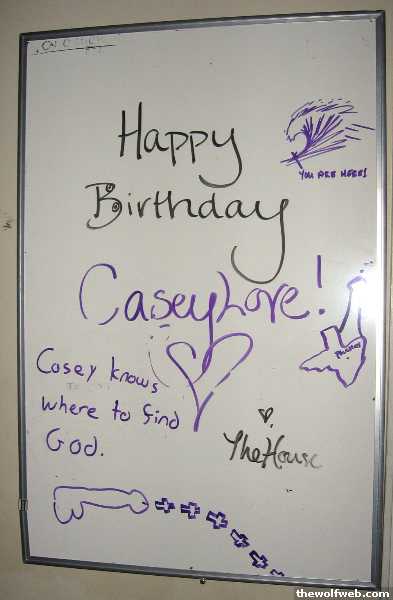 Happy
YOU ARE HERE!
Birthday
CaseyLove!
Casey knows
where to find
God.
The House
thewolfweb.com